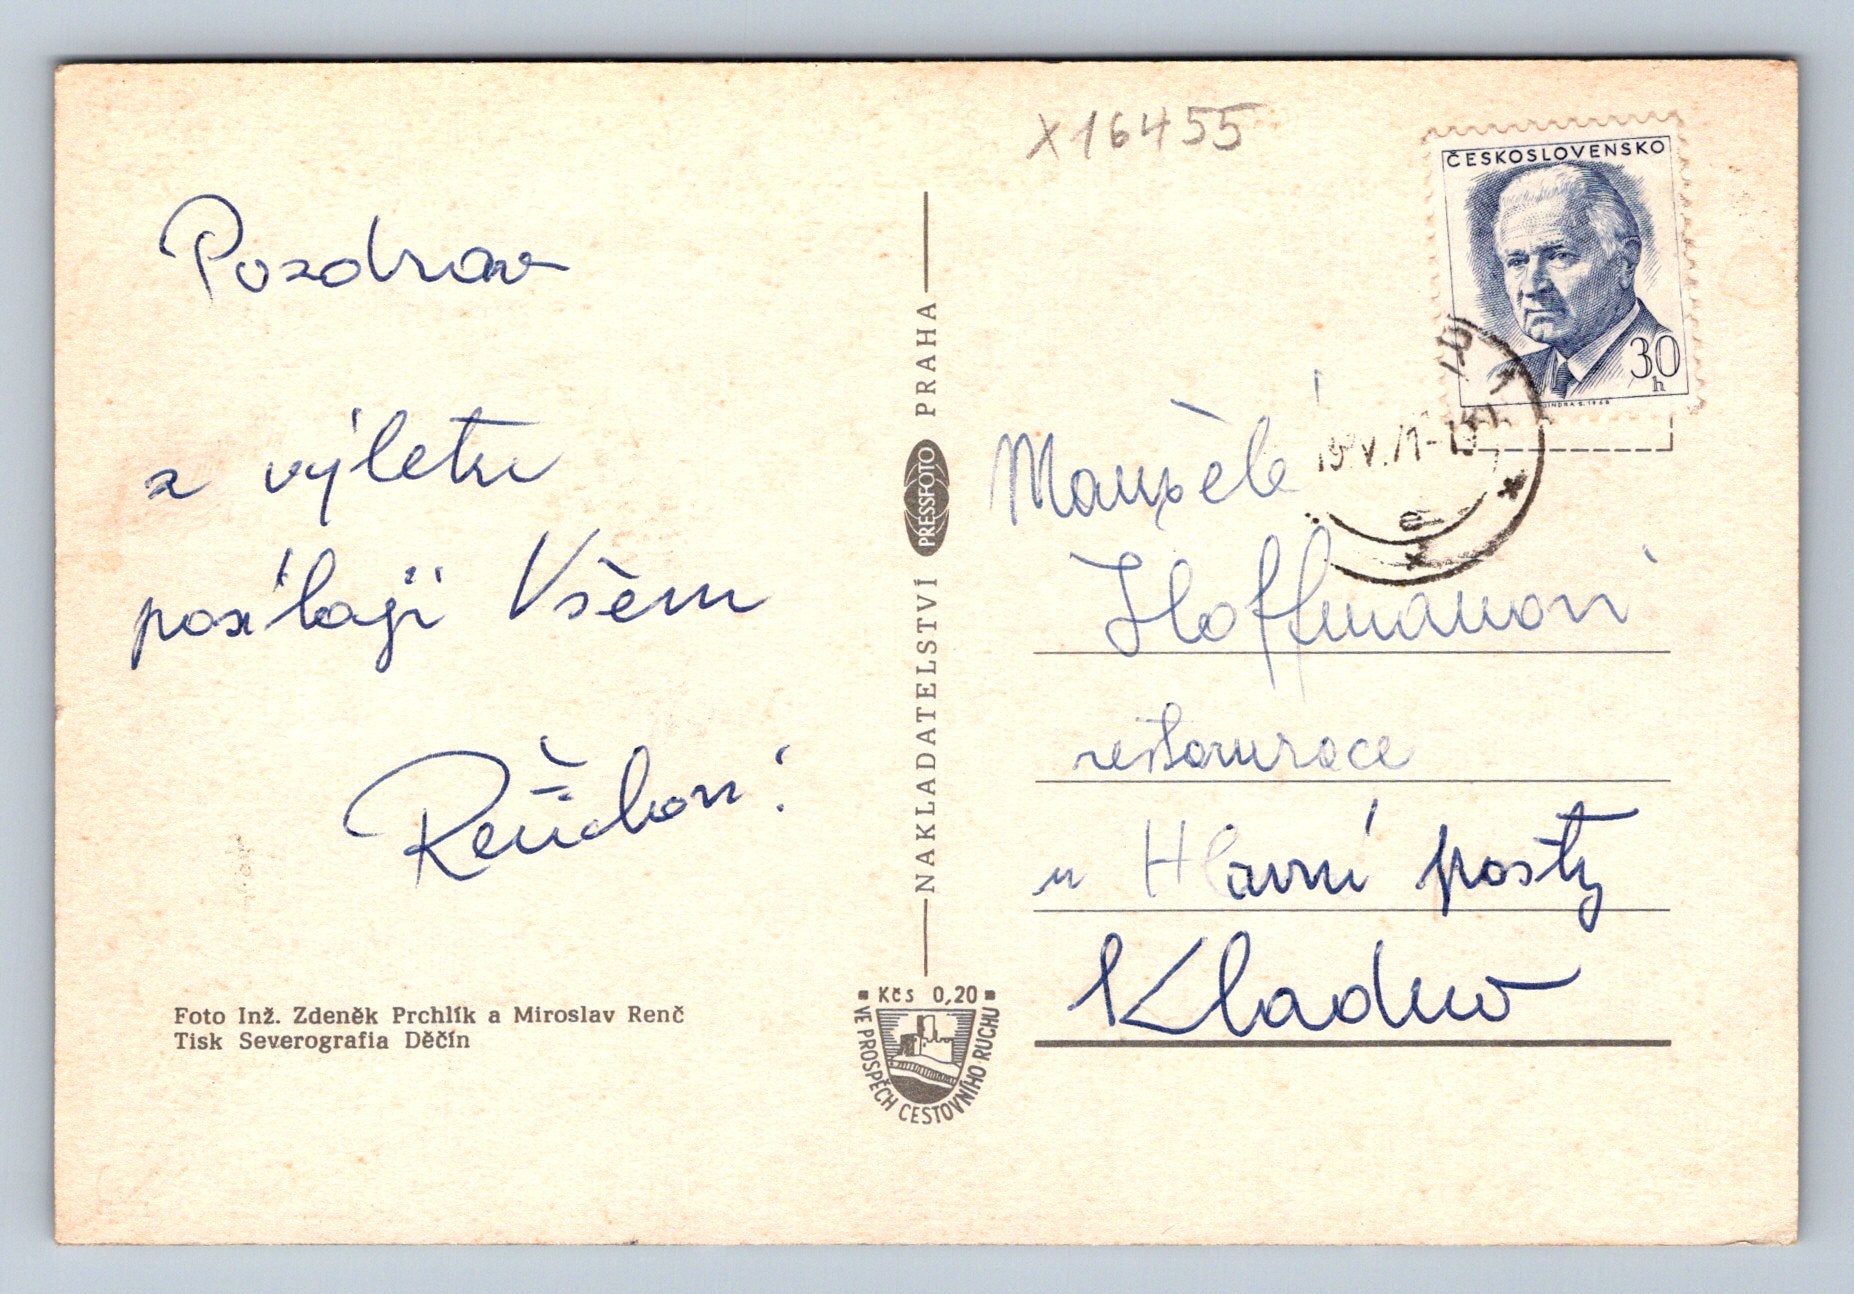 X16455
ČESKOSLOVENSKO
30
h
JINDRA S. 1968
Pozdrav
z výletu
posílají Všem
NAKLADATELSTVÍ PRESSFOTO PRAHA
Manželé
Hoffmanovi
restaurace
u Hlavní pošty
Kladno
Foto Inž. Zdeněk Prchlík a Miroslav Renč
Tisk Severografia Děčín
Kčs 0,20
VE PROSPĚCH CESTOVNÍHO RUCHU